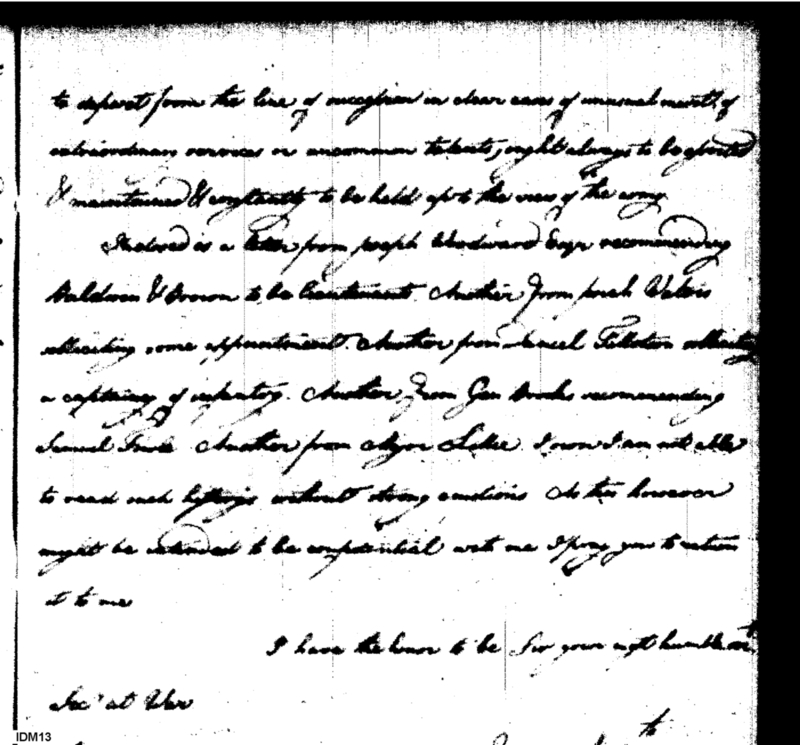 to depart from the line of succession in clear cases of unusual merit, of
extraordinary services or uncommon talents, ought always to be
& maintained & constantly to be held up to the view of the army
Inclosed is a letter from Joseph Woodward Esqr recomending
Baldwin & Brown to be lieutenant. Another from
solliciting some appointment. Another from Samuel Tillotson solliciting
a captaincy of infantry. Another from Gen Brooks recomending
Samuel Another from Major I own I am not able
to read such without strong emotions As this however
might be intended to be confidential with me I pray you to return
it to me
I have the honor to be Sir your mo humble
Secy at War
th
IDM13